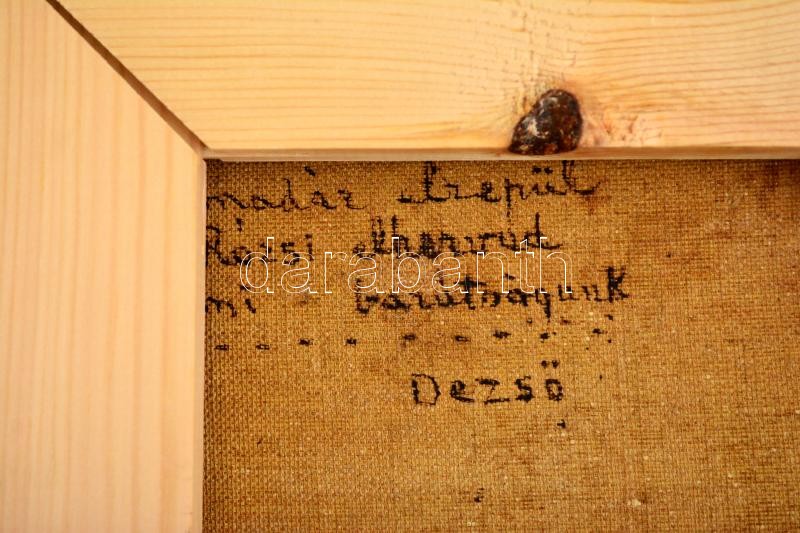 madár elrepül
Rózsi elhervad
mi barátságunk
- - - - - - - - -
Dezső
darabanth